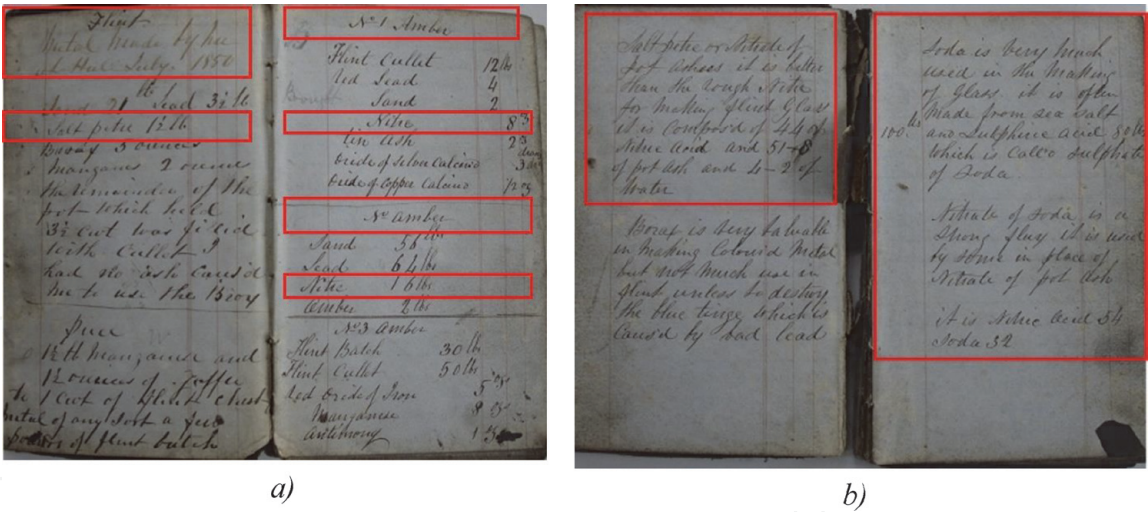 Flint
Metal Made by me
at Hull July 1850
Sand 21 lb Lead 3½ lb
Salt petre 1½ lb
Borax 3 ounces
Manganes 2 ounces
the remainder of the
pot which held
3½ Cwt was filled
with Cullet I
had no ash caus'd
me to use the
1½ lb Manganese and
1½ ounces of
to 1 Cwt of Flint
metal of any sort a few
of flint batch
No 1 Amber
Flint Cullet 12 lbs
Red Lead 4
Sand 2
Nitre 8
tin Ash 2
Oxide of Calcined 3
Oxide of Copper Calcined ½ oz
No Amber
Sand 56 lbs
Lead 64 lbs
Nitre 16 lbs
Amber 2 lbs
No 3 Amber
Flint Batch 30 lbs
Flint Cullet 50 lbs
Red Oxide of Iron 5 ozs
Manganese 8 ozs
Antimony 1
a)
Salt petre or Nitrate of
pot ashes it is better
than the rough Nitre
for making flint Glass
it is Compos'd of 44 of
Nitric Acid and 51-8
of pot ash and 4-2 of
Water
Borax is very valuable
in Making Colour'd Metal
but not much use in
flint unless to destroy
the blue tinge which is
caus'd by bad lead
Soda is very much
used in the Making
of Glass it is often
Made from sea salt
100 lbs and Sulphuric acid 80 lbs
Which is Call'd Sulphate
of Soda
Nitrate of Soda is a
strong flux it is used
by some in place of
Nitrate of pot ash
it is Nitric Acid 54
Soda 32
b)